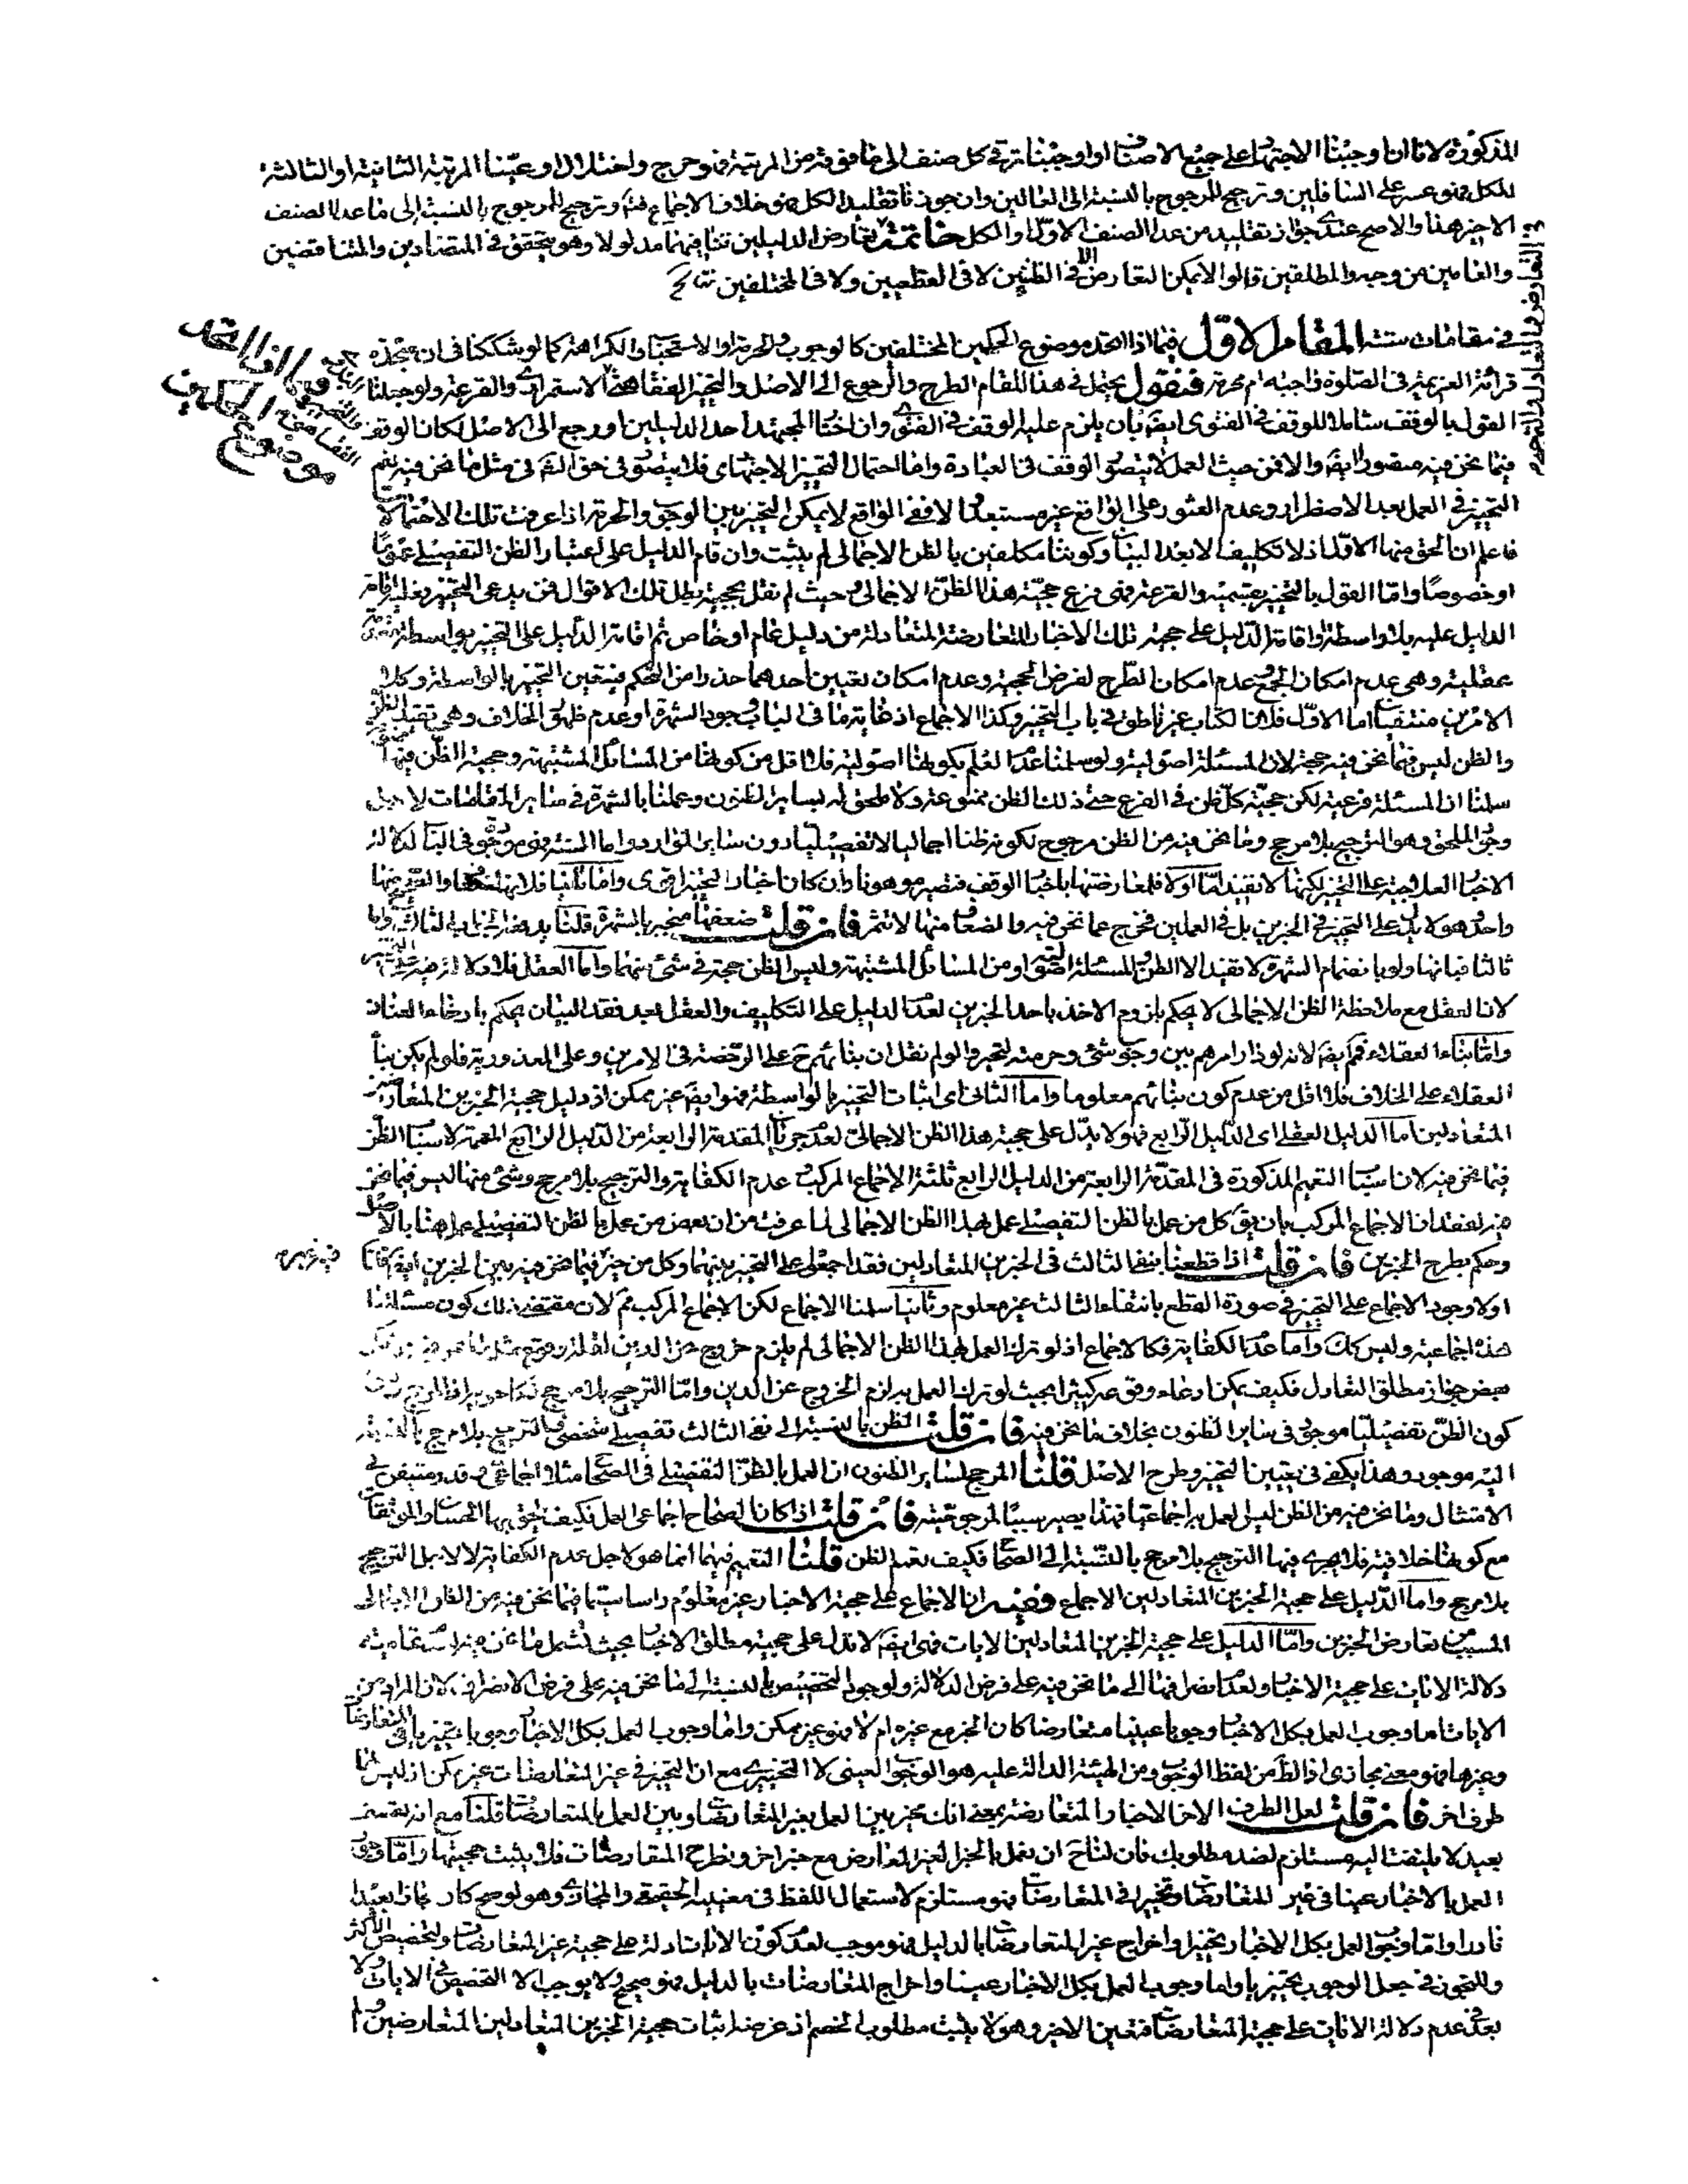 المذكورة لانا ان اوجبنا الاجتهاد على جميع الاصناف او اوجبنا ترقى كل صنف الى ما فوقه من المرتبة فهو حرج واختلال او عيّنا المرتبة الثانية او الثالثة
للكل فهو عسر على السافلين وترجيح للمرجوح بالنسبة الى العالين وان جوزنا تقليد الكل فهو خلاف الاجماع فيه وترجيح للمرجوح بالنسبة الى ما عدا الصنف
الاخير هذا والاصح عندي جواز تقليد من عدا الصنف الاول او الكل خاتمة تعارض الدليلين تنافيهما مدلولا وهو يتحقق في المتضادين والمتناقضين
والعامين من وجه والمطلقين قالوا لا يمكن التعارض الا في الظنيين لا في القطعيين ولا في المختلفين
في مقامات ستة المقام الاول فيما اذا اتحد موضوع الحكمين المختلفين كالوجوب والحرمة او الاستحباب والكراهة كما لو شككنا في ان سجدة
قرائة العزيمة في الصلوة واجبة ام محرمة فنقول يحتمل في هذا المقام الطرح والرجوع الى الاصل والتخيير الاستمراري والقرعة ولو جعلنا
القول بالوقف شاملا للوقف في الفتوى ايضا بان يلزم عليه الوقف في الفتوى وان اختار المجتهد احد الدليلين او رجع الى الاصل لكان الوقف
فيما نحن فيه متصورا ايضا والا فمن حيث العمل لا يتصور الوقف في العبادة واما احتمال التخيير الاجتهادي فلا يتصور في حق الله في مثل ما نحن فيه نعم
التخيير في العمل بعد الاضطرار وعدم العثور على الواقع غير مستبعد والا ففي الواقع لا يمكن التخيير بين الوجوب والحرمة اذا عرفت تلك الاحتمالات
فاعلم ان الحق منها الاول اذ لا تكليف الا بعد البيان وكوننا مكلفين بالظن الاجمالي لم يثبت وان قام الدليل على اعتبار الظن التفصيلي عموما
او خصوصا واما القول بالتخيير بقسميه والقرعة فهي فرع حجية هذا الظن الاجمالي وحيث لم نقل بحجيته بطل تلك الاقوال فمن يدعى التخيير فعليه اقامة
الدليل عليه بلا واسطة او اقامة الدليل على حجية تلك الاخبار المتعارضة المتعادلة من دليل عام او خاص ثم اقامة الدليل على التخيير بواسطة
عقلية وهي عدم امكان الجمع وعدم امكان الطرح لفرض الحجية وعدم امكان تعيين احدهما حذرا من التحكم فيتعين التخيير بالواسطة وكلا
الامرين منتفيان اما الاول فلان الكتاب غير ناطق في باب التخيير وكذا الاجماع اذ غاية ما في الباب وجود الشهرة او عدم ظهور الخلاف وهي تفيد الظن
والظن ليس فيما نحن فيه حجة لان المسئلة اصولية ولو سلمنا عدم العلم بكونها اصولية فلا اقل من كونها من المسائل المشتبهة وحجية الظن فيها
سلمنا ان المسئلة فرعية لكن حجية كل ظن في الفرع حتى ذلك الظن ممنوعة ولا ملحق له بساير الظنون وعملنا بالشهرة في ساير المقامات لاجل
وجود الملحق وهو الترجيح بلا مرجح وما نحن فيه من الظن مرجوح لكونه ظنا اجماليا لا تفصيليا دون ساير الموارد واما السنة فهي موجودة في الباب لدلالة
الاخبار العلاجية على التخيير لكنها لا تفيد اما اولا فلمعارضتها باخبار الوقف فتصير موهونة وان كان اخبار التخيير اقوى واما ثانيا فلانها والتصريح منها
واحد وهو لا يدل على التخيير في الخبرين بل في العملين فخرج عما نحن فيه والضعاف منها لا تثمر فان قلت ضعفها منجبر بالشهرة قلنا واما
ثالثا فبانها ولو بانضمام الشهرة لا تفيد الا الظن والمسئلة اصولية او من المسائل المشتبهة وليس الظن حجة في شئ منهما واما العقل فلا دلالة فيه
لان العقل مع ملاحظة الظن الاجمالي لا يحكم بلزوم الاخذ باحد الخبرين لعدم الدليل على التكليف والعقل بعد فقد البيان يحكم بارخاء العنان
واما بناء العقلاء فهم ايضا لانه لو دار امرهم بين وجوب شئ وحرمته لتحيروا لو لم نقل ان بنائهم ح على الرخصة في الامرين وعلى المعذورية فلو لم يكن بناء
العقلاء على الخلاف فلا اقل من عدم كون بنائهم معلوما واما الثاني اي اثبات التخيير بالواسطة فهو ايضا غير ممكن اذ دليل حجية الخبرين المتعارضين
المتعادلين اما الدليل العقلي اي الدليل الرابع فهو لا يدل على حجية هذا الظن الاجمالي لعدم جريان المقدمة الرابعة من الدليل الرابع المعممة لاسباب الظن
فيما نحن فيه لان اسباب التعميم المذكورة في المقدمة الرابعة من الدليل الرابع ثلثة الاجماع المركب وعدم الكفاية والترجيح بلا مرجح وشئ منها ليس فيما نحن
فيه لفقدان الاجماع المركب بان يق كل من عمل بالظن التفصيلي عمل بهذا الظن الاجمالي لما عرفت من ان بعض من عمل بالظن التفصيلي عمل هنا بالاصل
وحكم بطرح الخبرين فان قلت اذا قطعنا بنفي الثالث في الخبرين المتعادلين فقد اجمعوا على التخيير بينهما وكل من خير فيما نحن فيه بين الخبرين ايضا قلنا
اولا وجود الاجماع على التخيير في صورة القطع بانتفاء الثالث غير معلوم وثانيا سلمنا الاجماع لكن الاجماع المركب ثم لان مقتضى ذلك كون مسئلتنا
هذه اجماعية وليس كك واما عدم الكفاية فكالاجماع اذ لو ترك العمل بهذا الظن الاجمالي لم يلزم خروج عن الدين لقلة وقوع مثل ما نحن فيه
بعض جواز مطلق التعادل فكيف يمكن ادعاء وقوعه كثيرا بحيث لو ترك العمل به لزم الخروج عن الدين واما الترجيح بلا مرجح
كون الظن تفصيليا موجود في ساير الظنون بخلاف ما نحن فيه فان قلت الظن بالنسبة الى نفى الثالث تفصيلي شخصي والترجيح بلا مرجح بالنسبة
اليه موجود وهذا يكفي في تعيين التخيير وطرح الاصل قلنا المرجح لساير الظنون ان العمل بالظن التفصيلي في الصحاح مثلا اجماعي وقدر متيقن في
الامتثال وما نحن فيه من الظن ليس العمل به اجماعيا فهذا يصير سببا لمرجوحيته فان قلت اذا كان الصحاح اجماعي العمل فكيف الحسان والموثقات
مع كونها خلافية فلا يجري فيها الترجيح بلا مرجح بالنسبة الى الصحاح فكيف يعمم الظن قلنا التعميم فيهما انما هو لاجل عدم الكفاية لا لاجل الترجيح
بلا مرجح واما الدليل على حجية الخبرين المتعادلين الاجماع ففيه ان الاجماع على حجية الاخبار غير معلوم راسا سيما فيما نحن فيه من الظن الاجمالي
المسبب من تعارض الخبرين واما الدليل على حجية الخبرين المتعادلين الايات فهي ايضا لا تدل على حجية مطلق الاخبار بحيث تشمل ما نحن فيه
دلالة الايات على حجية الاخبار ولعدم انصرافها الى ما نحن فيه على فرض الدلالة ولوجود التخصيص بالنسبة الى ما نحن فيه على فرض الانصراف لان المراد من
الايات اما وجوب العمل بكل الاخبار وجوبا عينيا متعارضا كان الخبر مع غيره ام لا فهو غير ممكن واما وجوب العمل بكل الاخبار وجوبا تخييريا في المتعارضات
وغيرها فهو معنى مجازي اذ الظ من لفظ الوجوب ومن الهيئة الدالة عليه هو الوجوب العيني لا التخييري مع ان التخيير في غير المتعارضات غير ممكن اذ ليس لها
طرف اخر فان قلت لعل الطرف الاخر الاخبار المتعارضة بمعنى انك مخير بين العمل بغير المتعارضات وبين العمل بالمتعارضات قلنا مع انه
بعيد لا يلتفت اليه مستلزم لضد مطلوبك فان لنا ح ان نعمل بالخبر الغير المعارض مع خبر اخر ونطرح المتعارضات فلا يثبت حجيتها واما وجوب
العمل بالاخبار عينا في غير المتعارضات وتخييرا في المتعارضات فهو مستلزم لاستعمال اللفظ في معنييه الحقيقي والمجازي وهو لو صح كان مجازا بعيدا
نادرا واما وجوب العمل بكل الاخبار تخييرا واخراج غير المتعارضات بالدليل فهو موجب لعدم كون الايات دالة على حجية غير المتعارضات ولتخصيص الاكثر
وللتجوز في جعل الوجوب تخييريا واما وجوب العمل بكل الاخبار عينا واخراج المتعارضات بالدليل فهو صحيح ولا يوجب الا التخصيص في الايات
بعد عدم دلالة الايات على حجية المتعارضات فتعين الاخير وهو لا يثبت مطلوب الخصم اذ غرضه اثبات حجية الخبرين المتعادلين المتعارضين
فيما اذا اتحد
موضوع الحكمين